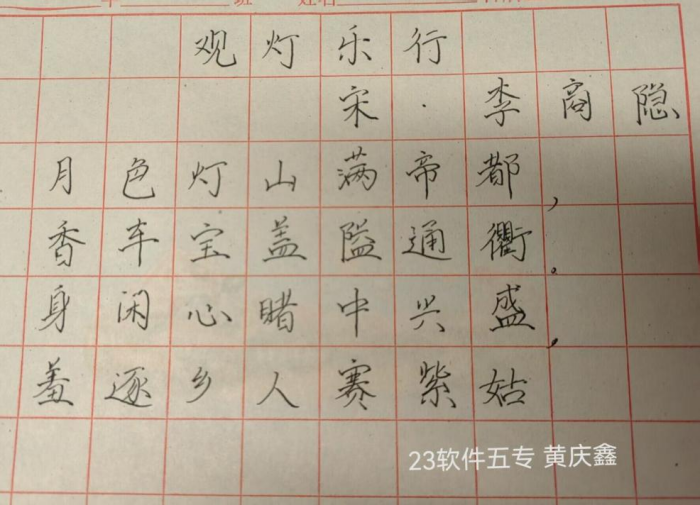 年 班 姓名
观灯乐行
宋·李商隐
月色灯山满帝都,
香车宝盖隘通衢。
身闲心睹中兴盛,
羞逐乡人赛紫姑
23软件五专 黄庆鑫